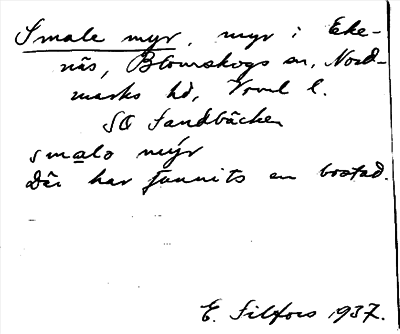 Smale myr, myr i Eke-
näs, Blomskogs sn, Nord-
marks hd, Vrml l.
SO Sandbäcken
smalo mýr
Där har funnits en bostad.
E. Filfors 1937.